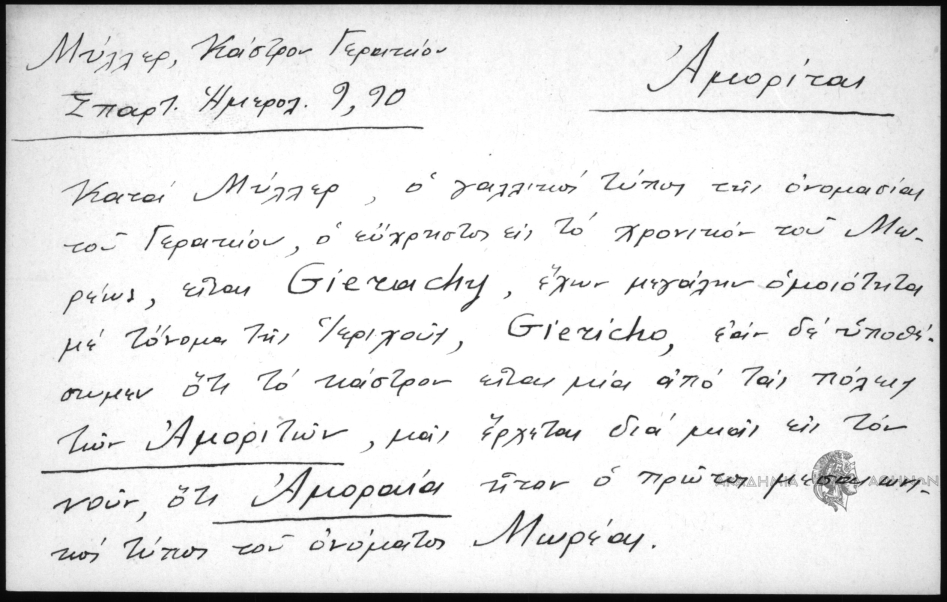 Μύλλερ, Κάστρον Γερακίου
Σπαρτ. Ημερολ. 9, 90
Ἀμορῖται
Κατά Μύλλερ, ὁ γαλλικός τύπος τῆς ὀνομασίας
τοῦ Γερακίου, ὁ εὔχρηστος εἰς τό χρονικόν τοῦ Μω-
ρέως, εἶναι Gierachy, ἔχων μεγάλην ὁμοιότητα
μέ τὄνομα τῆς Ἱεριχοῦς, Giericho, ἐάν δέ ὑποθέ-
σωμεν ὅτι τό κάστρον εἶναι μία ἀπό τάς πόλεις
τῶν Ἀμοριτῶν, μᾶς ἔρχεται διά μιᾶς εἰς τόν
νοῦν, ὅτι Ἀμοραία ἦταν ὁ πρῶτος μεσαιωνι-
κός τύπος τοῦ ὀνόματος Μωρέας.
ΑΚΑΔΗΜΙΑ ΑΘΗΝΩΝ